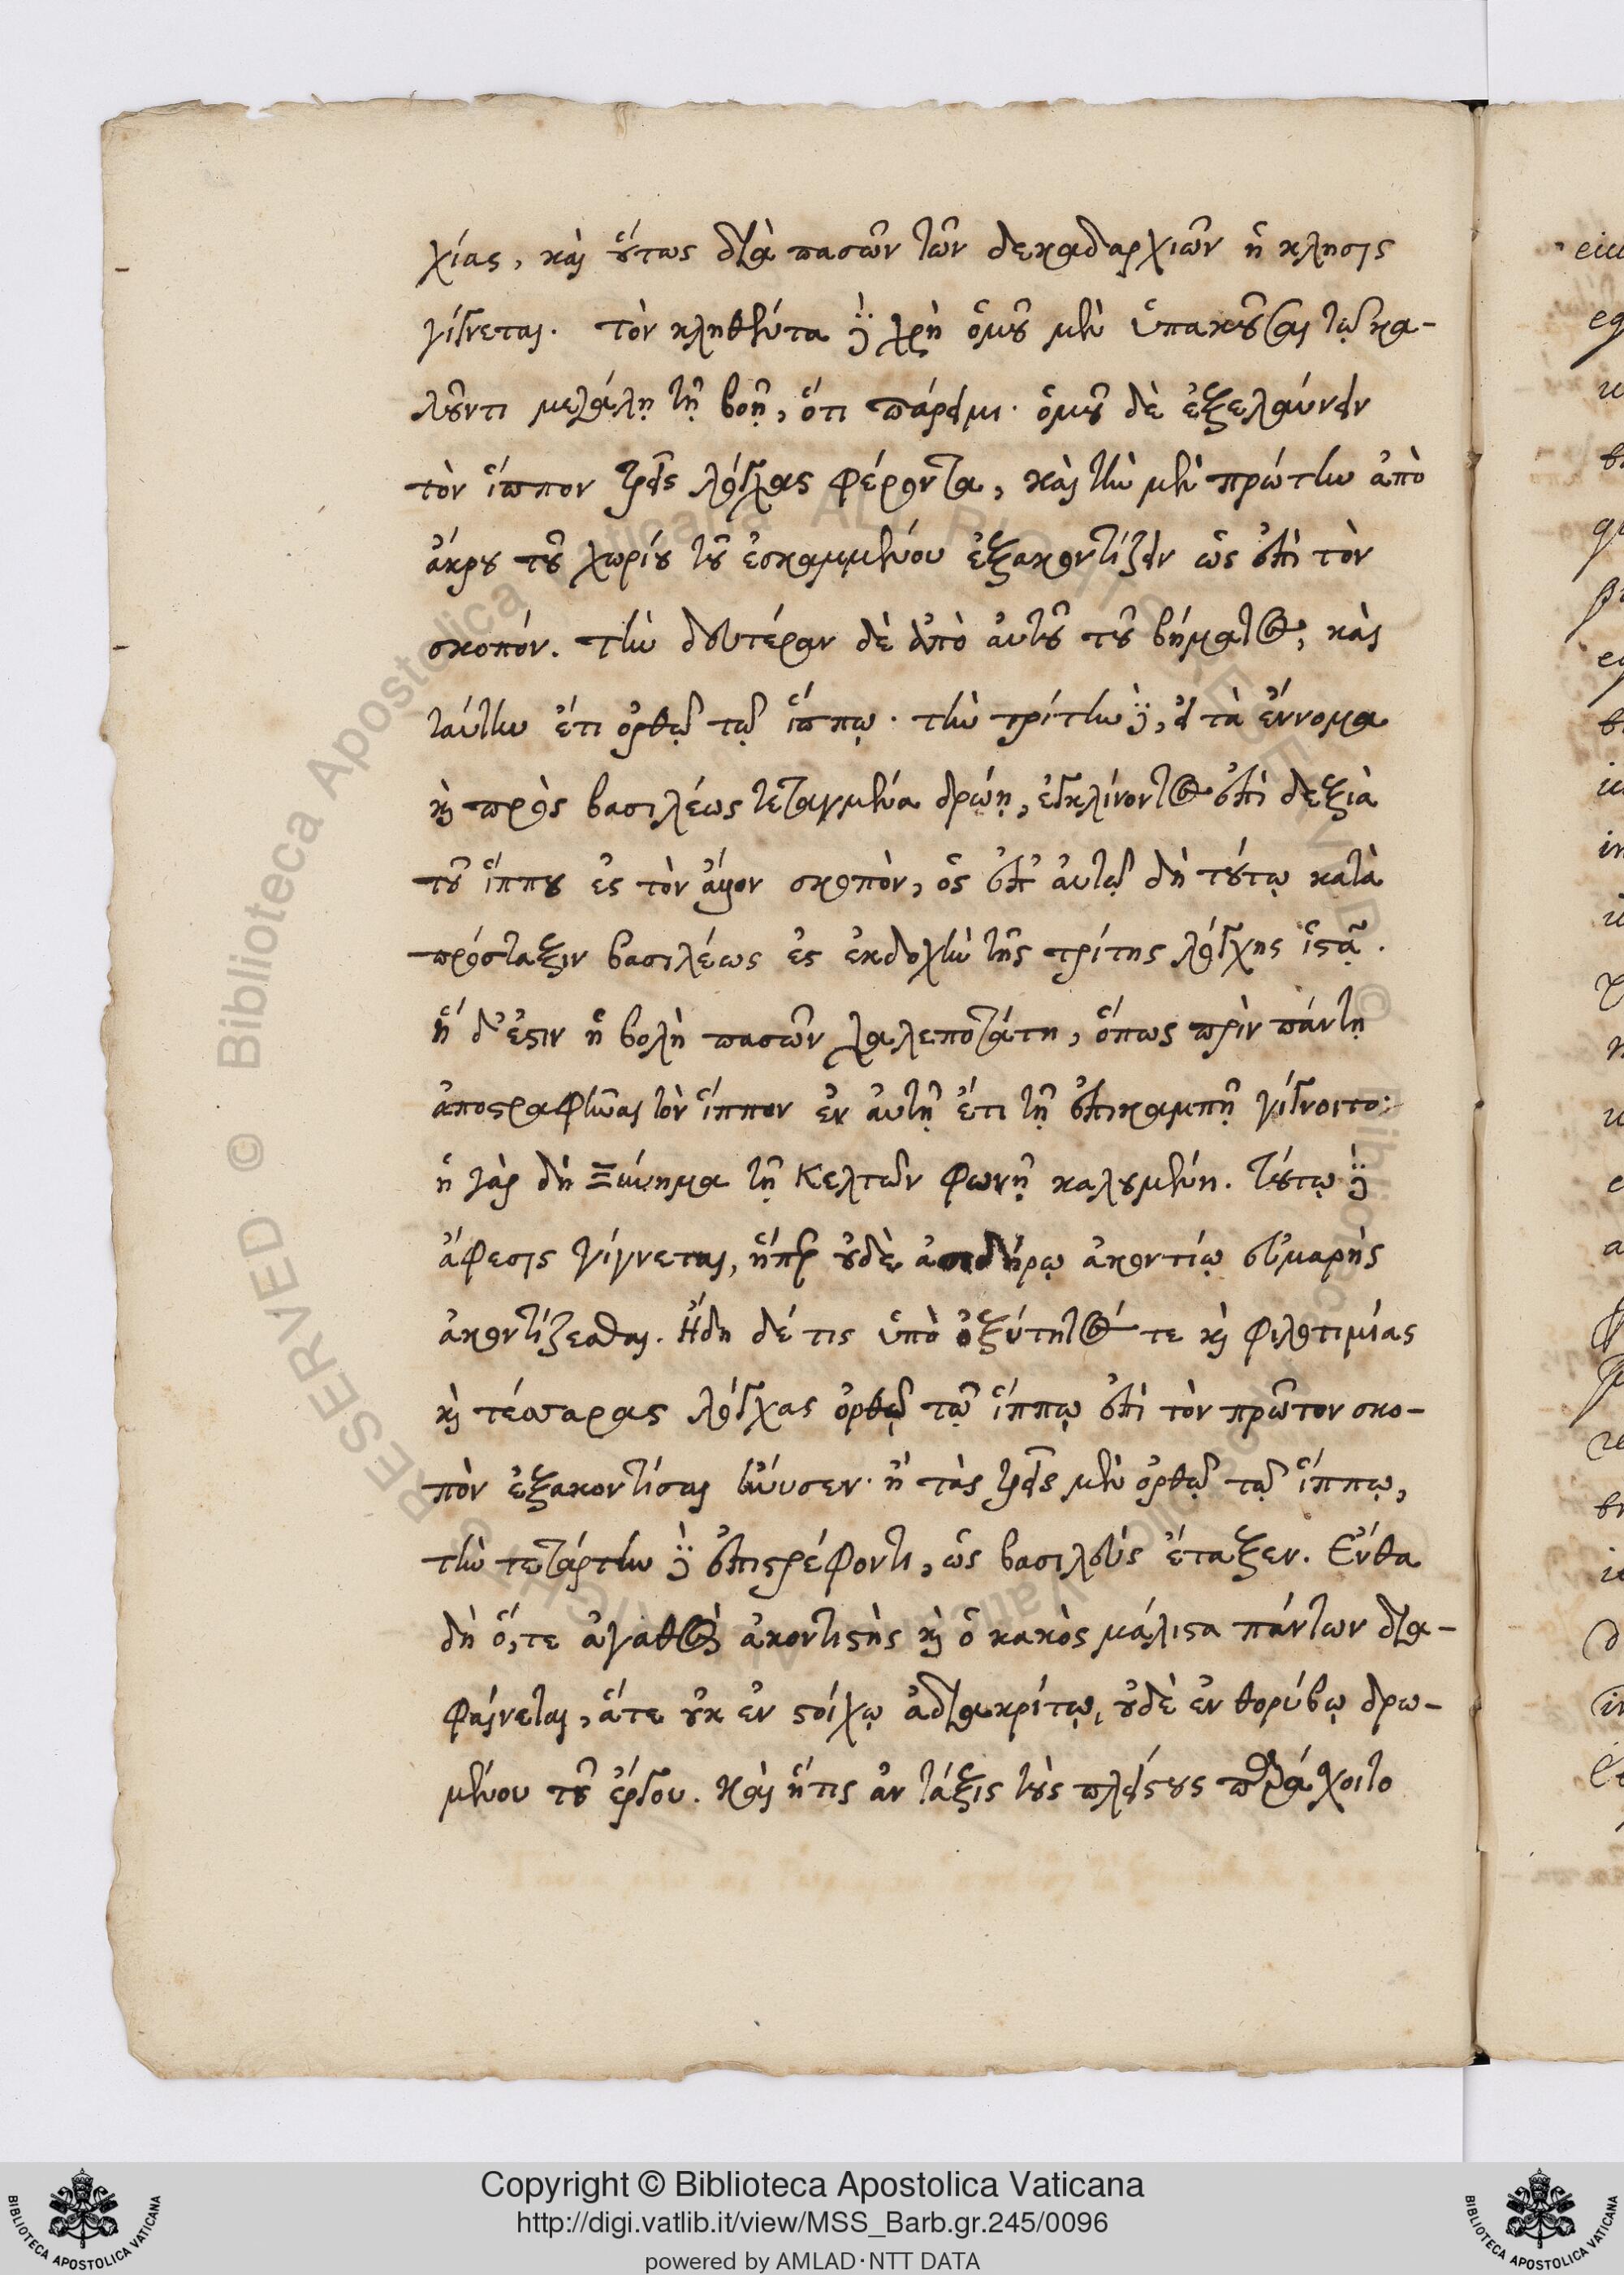 χίας, καὶ ȣ̔́τως διὰ πασῶν τῶν δεκαδαρχιῶν ἡ κλησις
γίγνεται. τὸν κληθέντα δὲ χρὴ ὁμοῦ μὲν ὑπακοῦσαι τῷ κα-
λοῦντι μεγάλῃ τῇ βοῇ, ὅτι πάρειμι· ὁμοῦ δὲ ἐξελαύνειν
τὸν ἵππον τρεῖς λόγχας φέροντα, καὶ τὴν μὲν πρώτην ἀπὸ
ἄκρου τοῦ χωρίου τοῦ ἐσκαμμένου ἐξακοντίζειν ὡς ἐπὶ τὸν
σκοπόν. τὴν δευτέραν δὲ ἀπὸ αὐτοῦ τοῦ βήματος, καὶ
ταύτην ἔτι ὀρθῷ τῷ ἵππῳ· τὴν τρίτην δὲ, εἰ τὰ ἔννομα
καὶ πρὸς βασιλέως τεταγμένα δρώῃ, ἐγκλίνοντος ἐπὶ δεξιὰ
τοῦ ἵππου ἐς τὸν ἄλλον σκοπὸν, ὃς ἐπ' αὐτῷ δὴ τούτῳ κατὰ
πρόσταξιν βασιλέως ἐς ἐκδοχὴν τῆς τρίτης λόγχης ἵσταται.
ἥ δ' ἐστιν ἡ βολὴ πασῶν χαλεποτάτη, ὅπως πρὶν πάντῃ
ἀποστραφῆναι τὸν ἵππον ἐν αὐτῇ ἔτι τῇ ἐπικαμπῇ γίγνοιτο·
ἡ γὰρ δὴ Ξύνημα τῇ Κελτῶν φωνῇ καλουμένη. τούτῳ δὲ
ἄφεσις γίγνεται, ἥπερ οὐδὲ ἀσιδήρῳ ἀκοντίῳ εὐμαρὴς
ἀκοντίζεσθαι. Ἤδη δέ τις ὑπὸ ὀξύτητός τε καὶ φιλοτιμίας
καὶ τέσσαρας λόγχας ὀρθῷ τῷ ἵππῳ ἐπὶ τὸν πρῶτον σκο-
πὸν ἐξακοντίσαι ἤνυσεν· ἢ τὰς τρεῖς μὲν ὀρθῷ τῷ ἵππῳ,
τὴν τετάρτην δὲ ἐπιστρέφοντι, ὡς βασιλεὺς ἔταξεν. Ἔνθα
δὴ ὅ,τε ἀγαθὸς ἀκοντιστὴς καὶ ὁ κακὸς μάλιστα πάντων δια-
φαίνεται, ἅτε οὐκ ἐν στοίχῳ ἀδιακρίτῳ, οὐδὲ ἐν θορύβῳ δρω-
μένου τοῦ ἔργου. Καὶ ἥτις ἂν τάξις τοὺς πλείστους παράσχοιτο
Copyright © Biblioteca Apostolica Vaticana
http://digi.vatlib.it/view/MSS_Barb.gr.245/0096
powered by AMLAD·NTT DATA